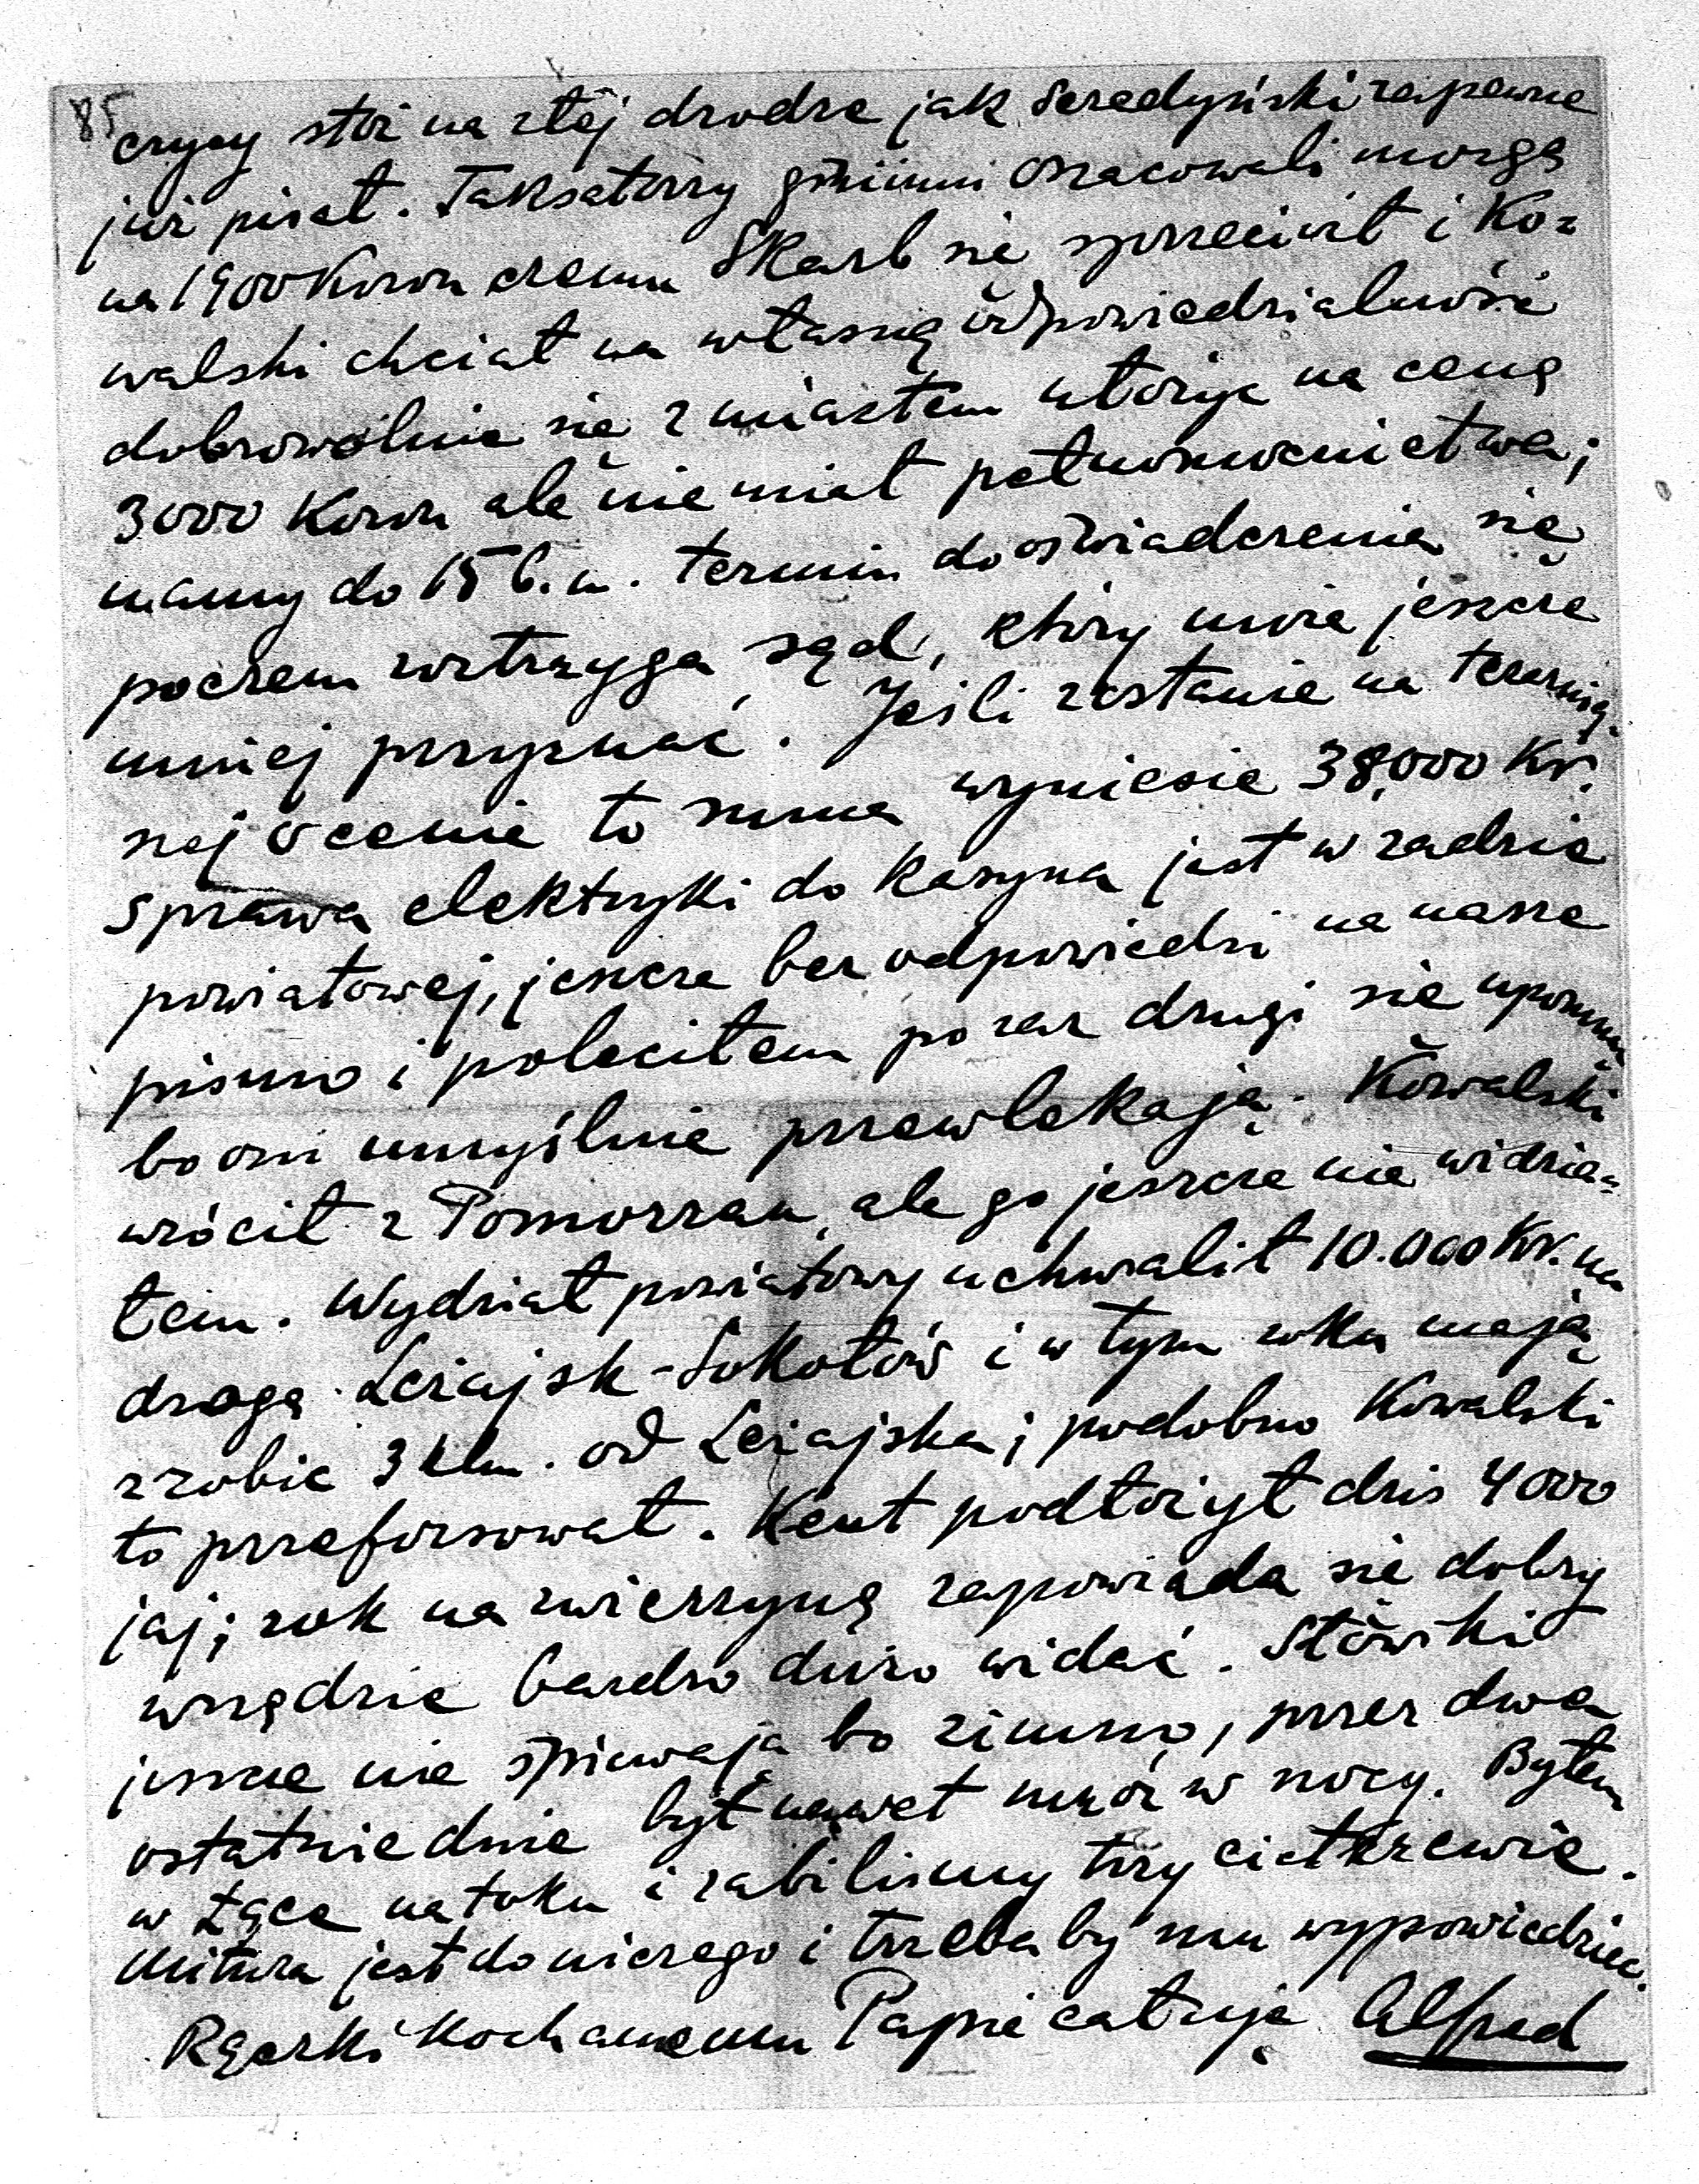 85
czycy stoi na złej drodze jak Seredyński zapewne
już pisał. Taksatorzy gminni oszacowali morgę
na 1900 Koron czemu Skarb się sprzeciwił i Ko=
walski chciał na własną odpowiedzialność
dobrowolnie się z miastem ułożyć na cenę
3000 Koron ale nie miał pełnomocnictwa;
mamy do 15 b.m. termin do oświadczenia się
poczem roztrzyga sąd, który może jeszcze
mniej przyznać. Jeśli zostanie na terazniej
szej ocenie to suma wyniesie 38,000 Kr.
Sprawa elektryki do Kasyna jest w radzie
powiatowej, jeszcze bez odpowiedzi na nasze
pismo i poleciłem po raz drugi się upomnieć
bo oni umyślnie przewlekają. Kowalski
wrócił z Pomorzan, ale go jeszcze nie widzia=
łem. Wydział powiatowy uchwalił 10.000 Kr. na
drogę Leżajsk-Sokołów i w tym roku mają
zrobić 3 klm. od Leżajska; podobno Kowalski
to przeforsował. Kent podłożył dziś 4000
jaj; rok na zwierzynę zapowiada się dobry
wszędzie bardzo dużo widać. Słówiki
jeszcze nie śpiewają bo zimno, przez dwa
ostatnie dnie był nawet mróz w nocy. Byłem
w Łące na toku i zabiliśmy trzy cietrzewie.
Mitura jest do niczego i trzeba by mu wypowiedzieć.
Rączki Kochanemu Papie całuję Alfred